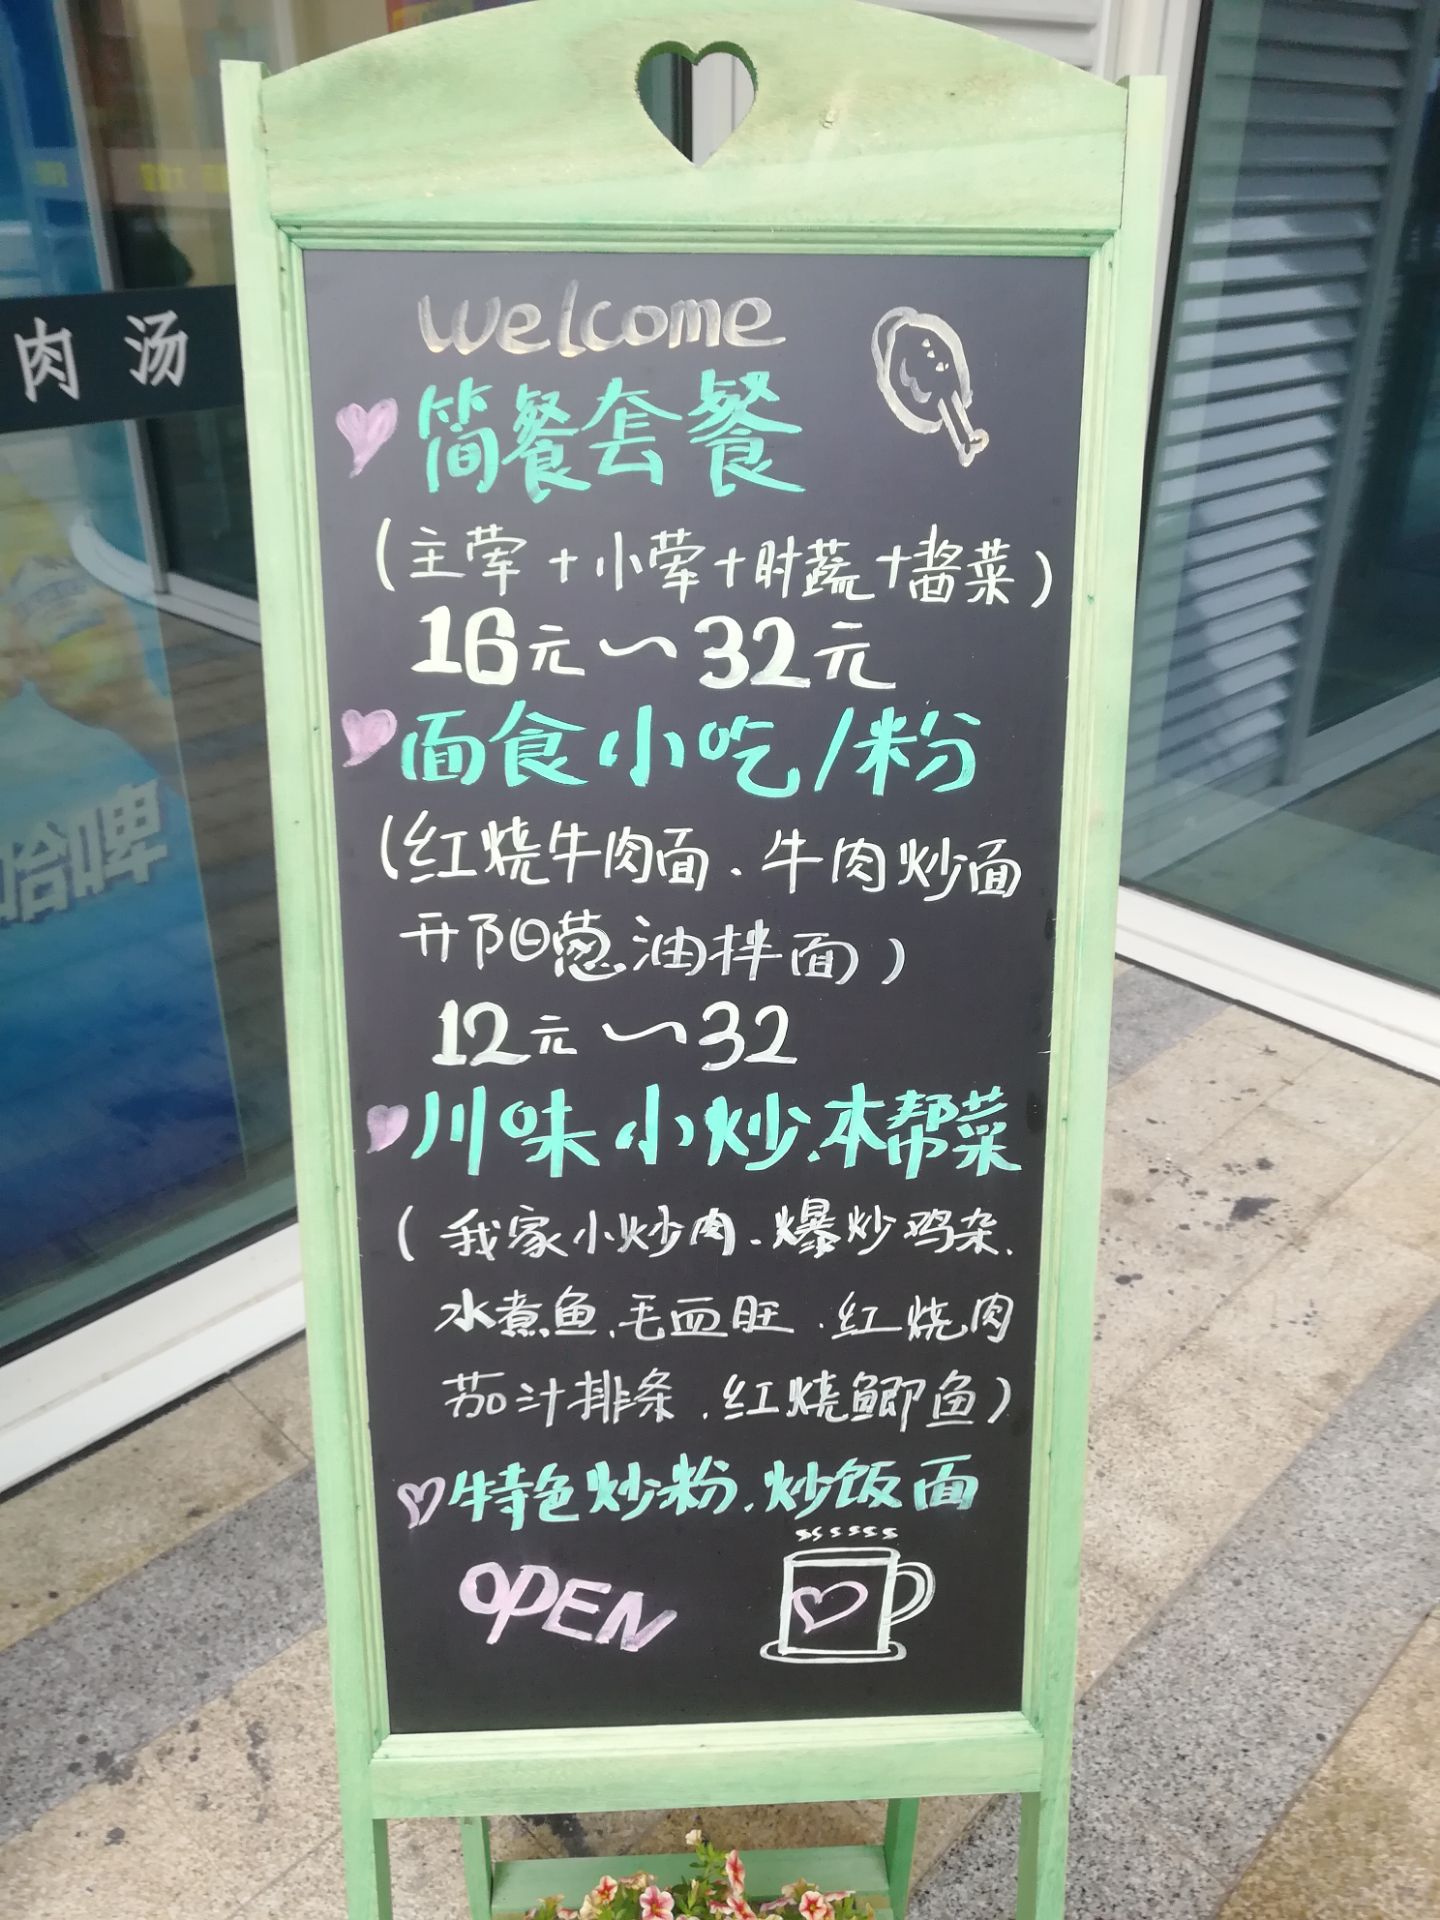 肉汤
welcome
简餐套餐
(主荤+小荤+时蔬+酱菜)
16元~32元
面食小吃/粉
(红烧牛肉面、牛肉炒面
开阳葱油拌面)
12元~32
川味小炒.本帮菜
(我家小炒肉、爆炒鸡杂、
水煮鱼、毛血旺、红烧肉
茄汁排条、红烧鲫鱼)
特色炒粉、炒饭面
OPEN